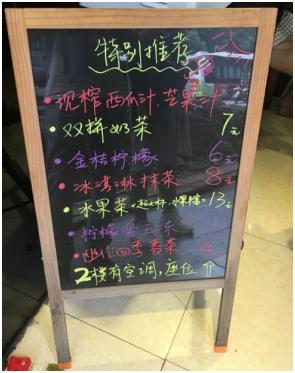 特别推荐
·现榨西瓜汁.芒果汁
·双拼奶茶 7元
·金桔柠檬 6元
·冰淇淋抹茶 8元
·水果茶 13元
·柠檬
四季春茶 4元
2楼有空调,座位